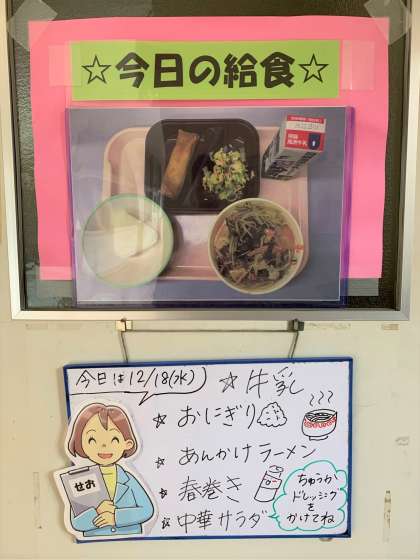 ☆今日の給食☆
今日は12/18(水)
☆牛乳
☆おにぎり
☆あんかけラーメン
☆春巻き
☆中華サラダ
ちゅうか
ドレッシング
を
かけてね
せお